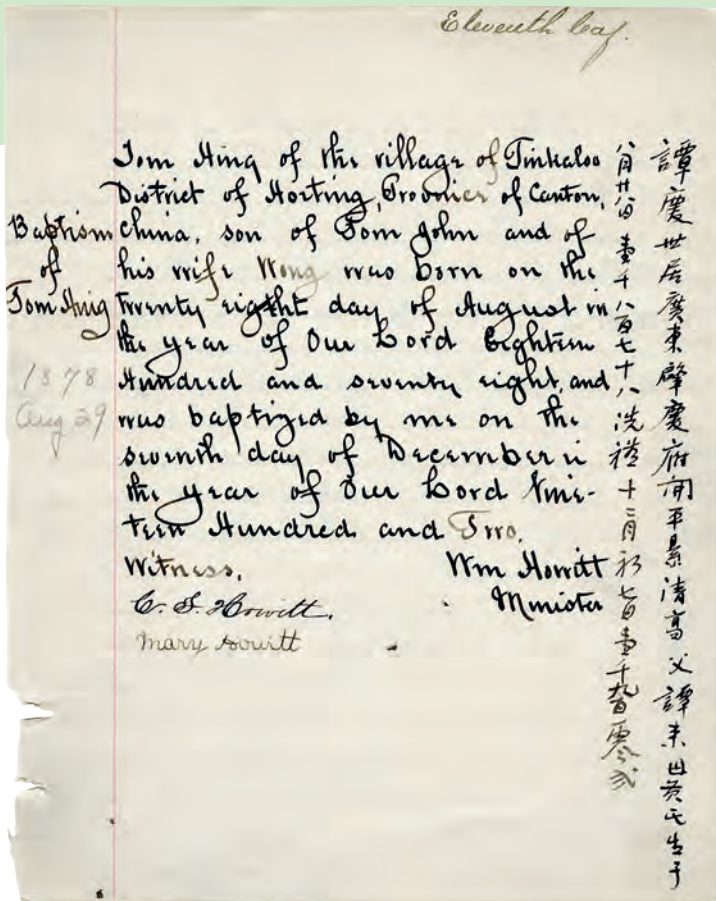 Eleventh leaf.
Baptism
of
Tom Hing
1878
Aug 29
Tom Hing of the village of Tinkaloo
District of Hoiting, Province of Canton,
China, son of Tom John and of
his wife Wong was born on the
twenty eight day of August in
the year of Our Lord Eighteen
Hundred and seventy eight, and
was baptized by me on the
seventh day of December in
the year of Our Lord Nine-
teen Hundred and Two.
Witness,
Wm Howitt
Minister
C. S. Howitt.
Mary Howitt
譚慶世居廣東肇慶府開平縣清高父譚来母黃氏生于
八月廿八日壹千八百七十八洗禮十二月初七日壹千九百零弍